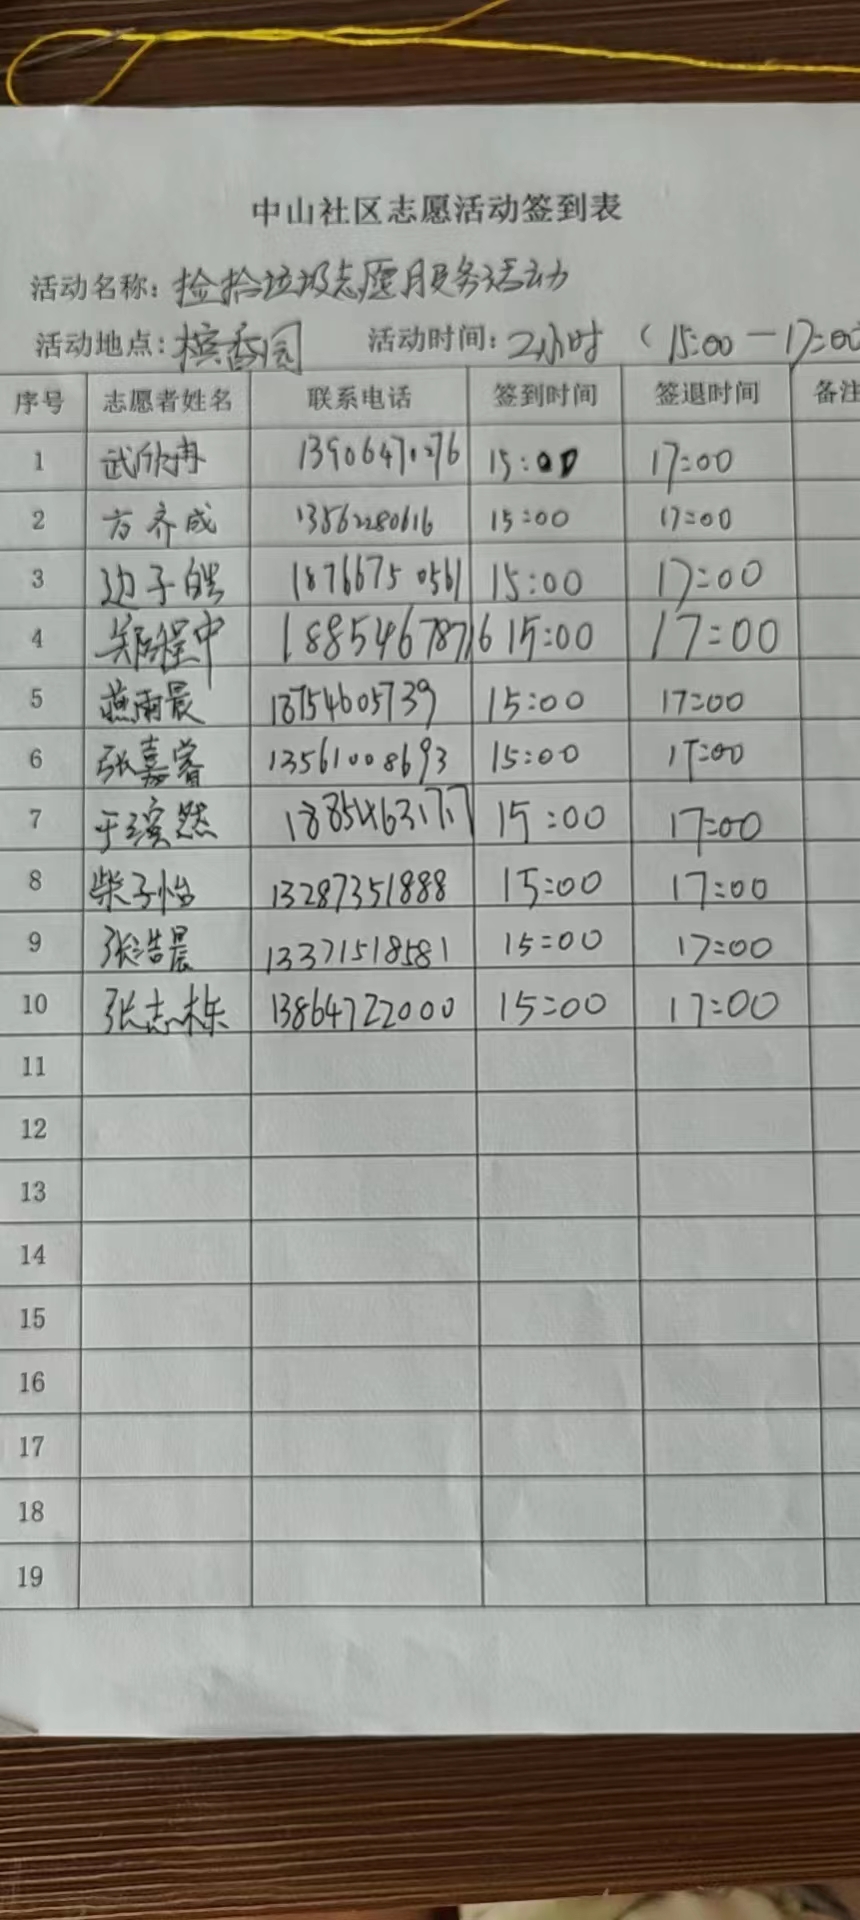 中山社区志愿活动签到表
活动名称：捡拾垃圾志愿服务活动
活动地点：槟香园 活动时间：2小时（15:00—17:00
序号 志愿者姓名 联系电话 签到时间 签退时间 备注
1 武欣冉 13906471276 15:00 17:00
2 方齐成 13562280616 15:00 17:00
3 边子皓 18766750561 15:00 17:00
4 郑程中 18854678716 15:00 17:00
5 燕雨晨 18754605739 15:00 17:00
6 张嘉睿 13561008693 15:00 17:00
7 于滨然 18854631717 15:00 17:00
8 柴子怡 13287351888 15:00 17:00
9 张浩晨 13371518581 15:00 17:00
10 张志栋 13864722000 15:00 17:00
11
12
13
14
15
16
17
18
19